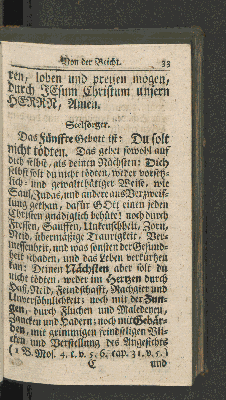 Von der Beicht. 33
ren, loben und preisen mögen,
durch JEsum Christum unsern
HERRN, Amen.
Seelsorger.
Das Fünfte Gebott ist: Du solt
nicht tödten. Das gehet sowohl auf
dich selbst, als deinen Nächsten: Dich
selbst solt du nicht tödten, weder vorsetz-
lich- und gewaltthätiger Weise, wie
Saul, Judas, und andere aus Verzweif-
lung gethan, dafür GOtt einen jeden
Christen gnädiglich behüte! noch durch
Fressen, Sauffen, Unkeuschheit, Zorn,
Neid, übermäßige Traurigkeit, Ver-
messenheit, und was sonsten der Gesund-
heit schaden, und das Leben verkürtzen
kan: Deinen Nächsten aber solt du
nicht tödten, weder im Hertzen durch
Haß, Neid, Feindschafft, Rachgier und
Unversöhnlichkeit; noch mit der Zun-
gen, durch Fluchen und Maledeyen,
Zancken und Hadern; noch mit Gebär-
den, mit grimmigen feindseligen Bli-
cken und Verstellung des Angesichts
(1 B. Mos. 4. v. 5. 6. cap. 31. v. 5.)
C und